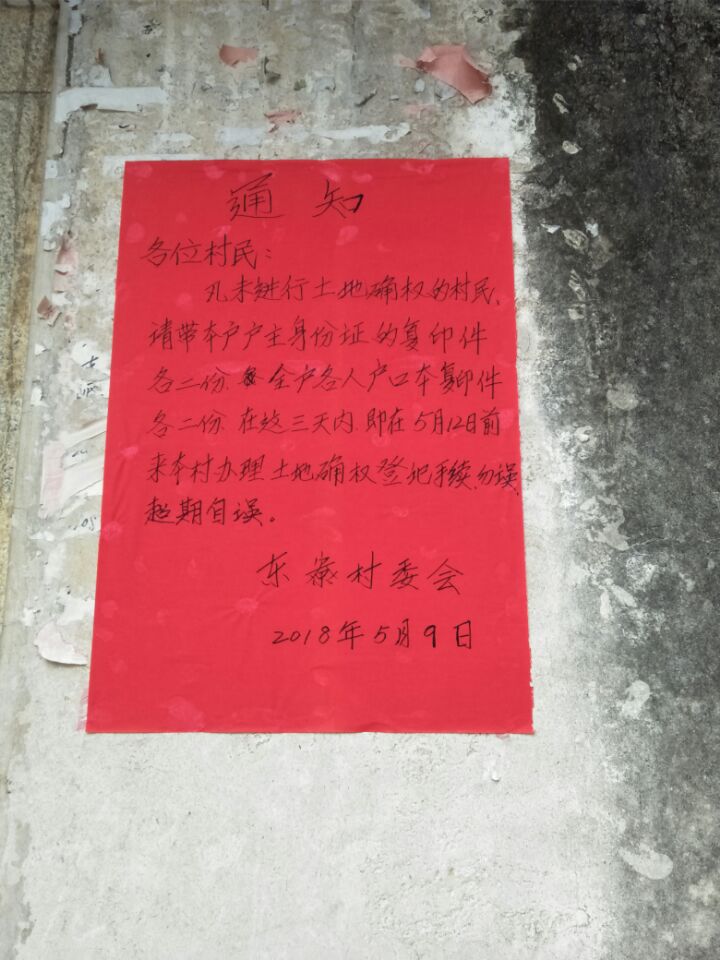 通知
各位村民：
凡未进行土地确权的村民、
请带本户户主身份证的复印件
各二份、全户各人户口本复印件
各二份、在这三天内、即在5月12日前
来本村办理土地确权登记手续、勿误、
超期自误。
东 村委会
2018年5月9日